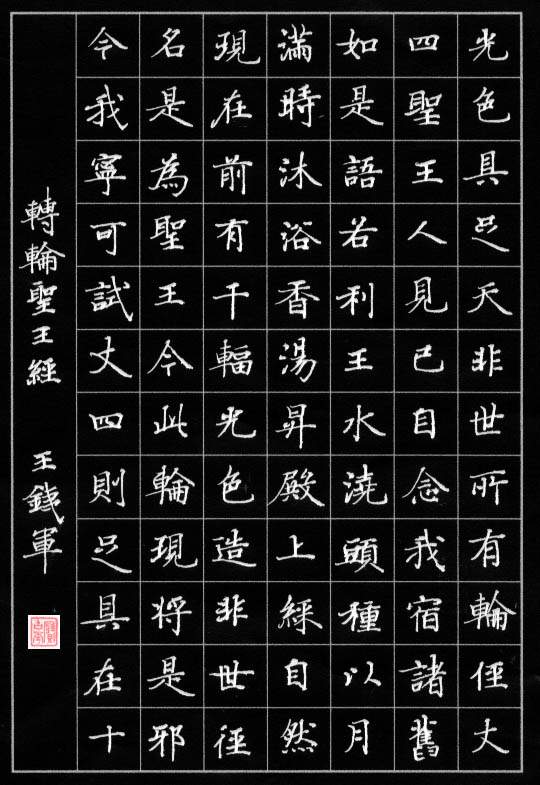 光色具足天非世所有輪徑丈
四聖王人見已自念我宿諸舊
如是語若利王水澆頭種以月
滿時沐浴香湯昇殿上綵自然
現在前有千輻光色造非世徑
名是為聖王今此輪現將是邪
今我寧可試丈四則足具在十
轉輪聖王經 王鐵軍